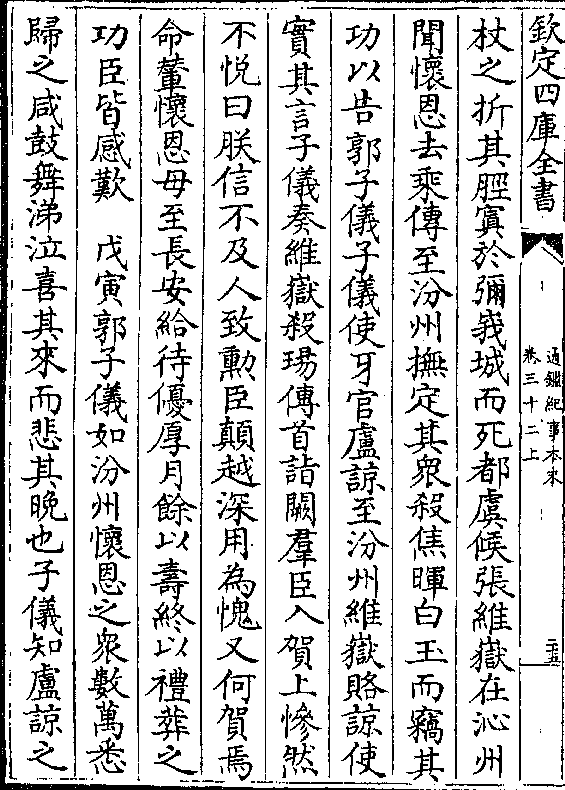 欽定四庫全書
通鑑紀事本末
卷三十二上
二五
杖之折其脛寘於彌峩城而死都虞候張維嶽在沁州
聞懷恩去乘傳至汾州撫定其衆殺焦暉白玉而竊其
功以告郭子儀子儀使牙官盧諒至汾州維嶽賂諒使
實其言子儀奏維嶽殺瑒傳首詣闕羣臣入賀上慘然
不悅曰朕信不及人致勲臣顛越深用為愧又何賀焉
命輦懷恩母至長安給待優厚月餘以壽終以禮葬之
功臣皆感歎　戊寅郭子儀如汾州懷恩之衆數萬悉
歸之咸鼓舞涕泣喜其來而悲其晚也子儀知盧諒之